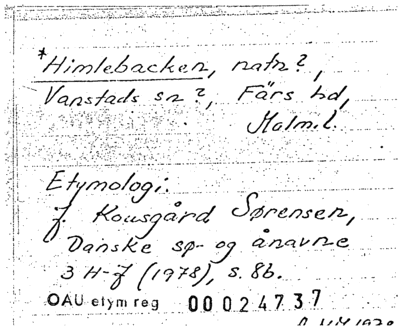 *Himlebacken, natn?,
Vanstads sn?, Färs hd,
Malm.l.
Etymologi:
J. Kousgård Sørensen,
Danske sø- og ånavne
3 H-J (1978), s. 86.
OAU etym reg 00024737